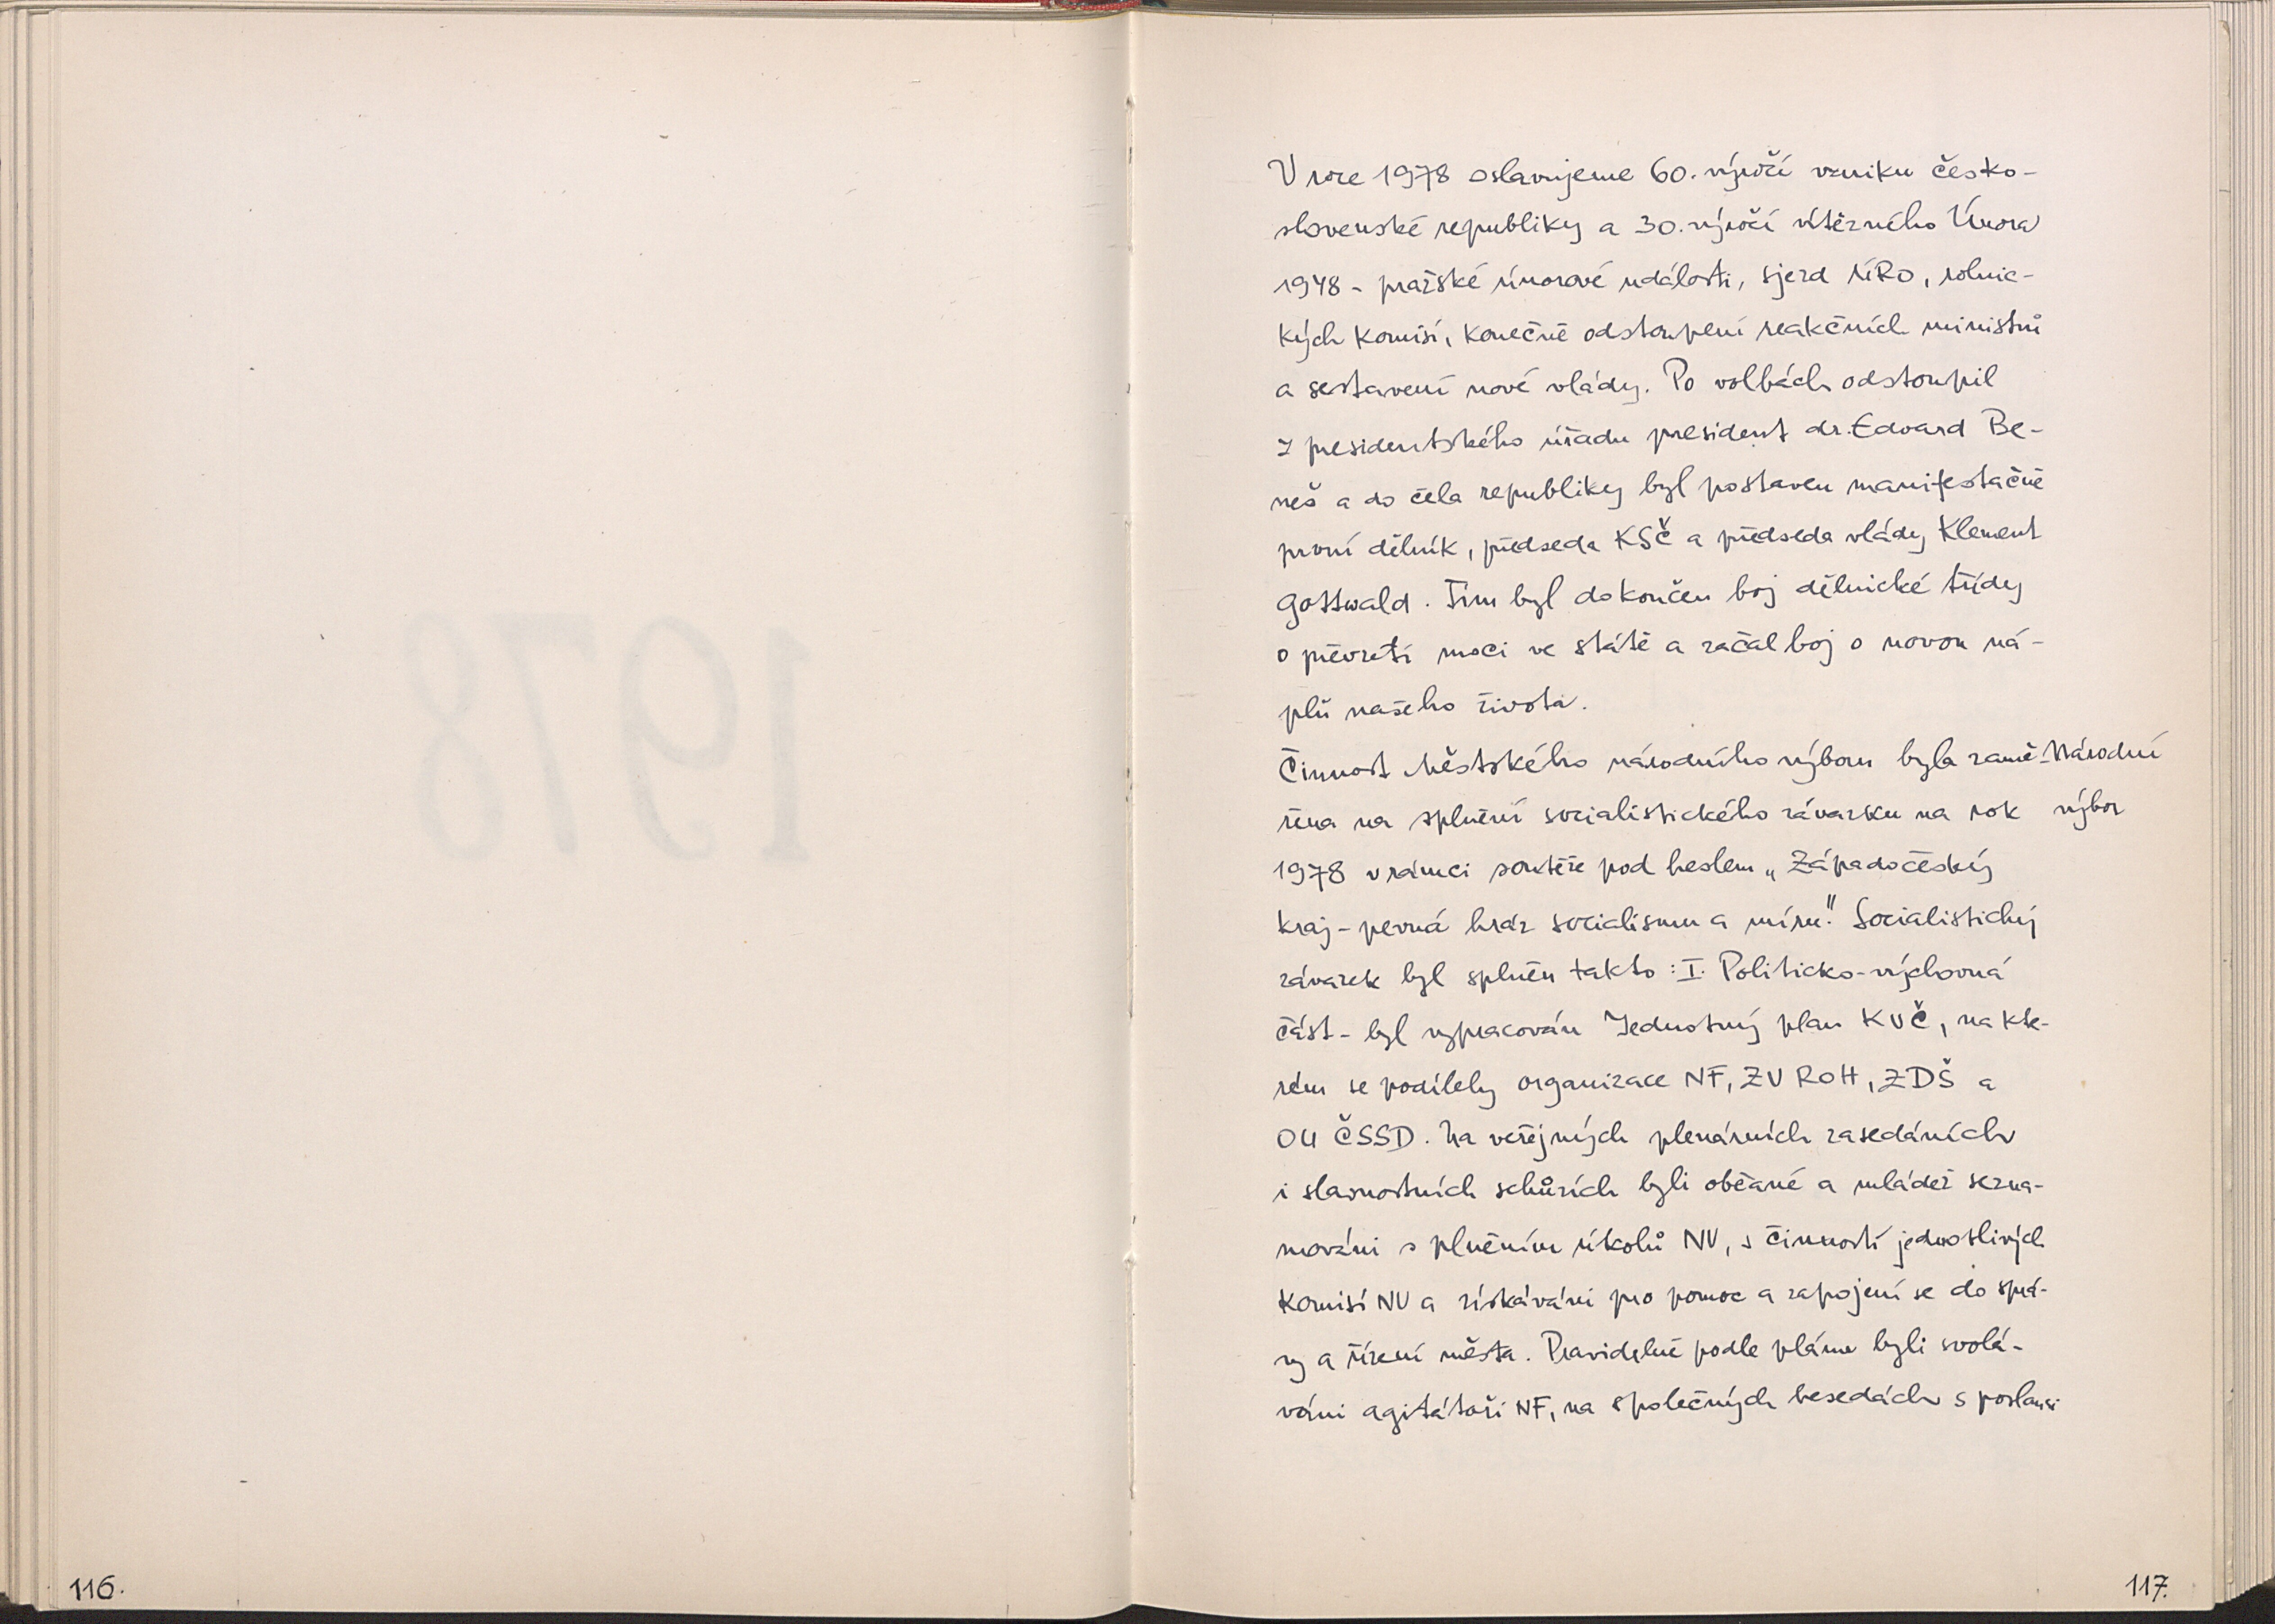 V roce 1978 oslavujeme 60. výročí vzniku česko-
slovenské republiky a 30. výročí vítězného Února
1948 - pražské únorové události, sjezd ÚRO, rolnic-
kých komisí, konečné odstoupení reakčních ministrů
a sestavení nové vlády. Po volbách odstoupil
z presidentského úřadu president dr. Edvard Be-
neš a do čela republiky byl postaven manifestačně
první dělník, předseda KSČ a předseda vlády Klement
Gottwald. Tím byl dokončen boj dělnické třídy
o převzetí moci ve státě a začal boj o novou ná-
plň našeho života.
Činnost Městského národního výboru byla zamě-
řena na splnění socialistického závazku na rok
1978 v rámci soutěže pod heslem „Západočeský
kraj - pevná hráz socialismu a míru". Socialistický
závazek byl splněn takto: I. Politicko-výchovná
část - byl vypracován Jednotný plan KVČ, na kte-
rém se podílely organizace NF, ZV ROH, ZDŠ a
OU ČSSD. Na veřejných plenárních zasedáních
i slavnostních schůzích byli občané a mládež sezna-
mováni s plněním úkolů NV, s činností jednotlivých
komisí NV a získáváni pro pomoc a zapojení se do sprá-
vy a řízení města. Pravidelně podle plánu byli svolá-
váni agitátoři NF, na společných besedách s poslanci
Národní
výbor
1978
116.
117.